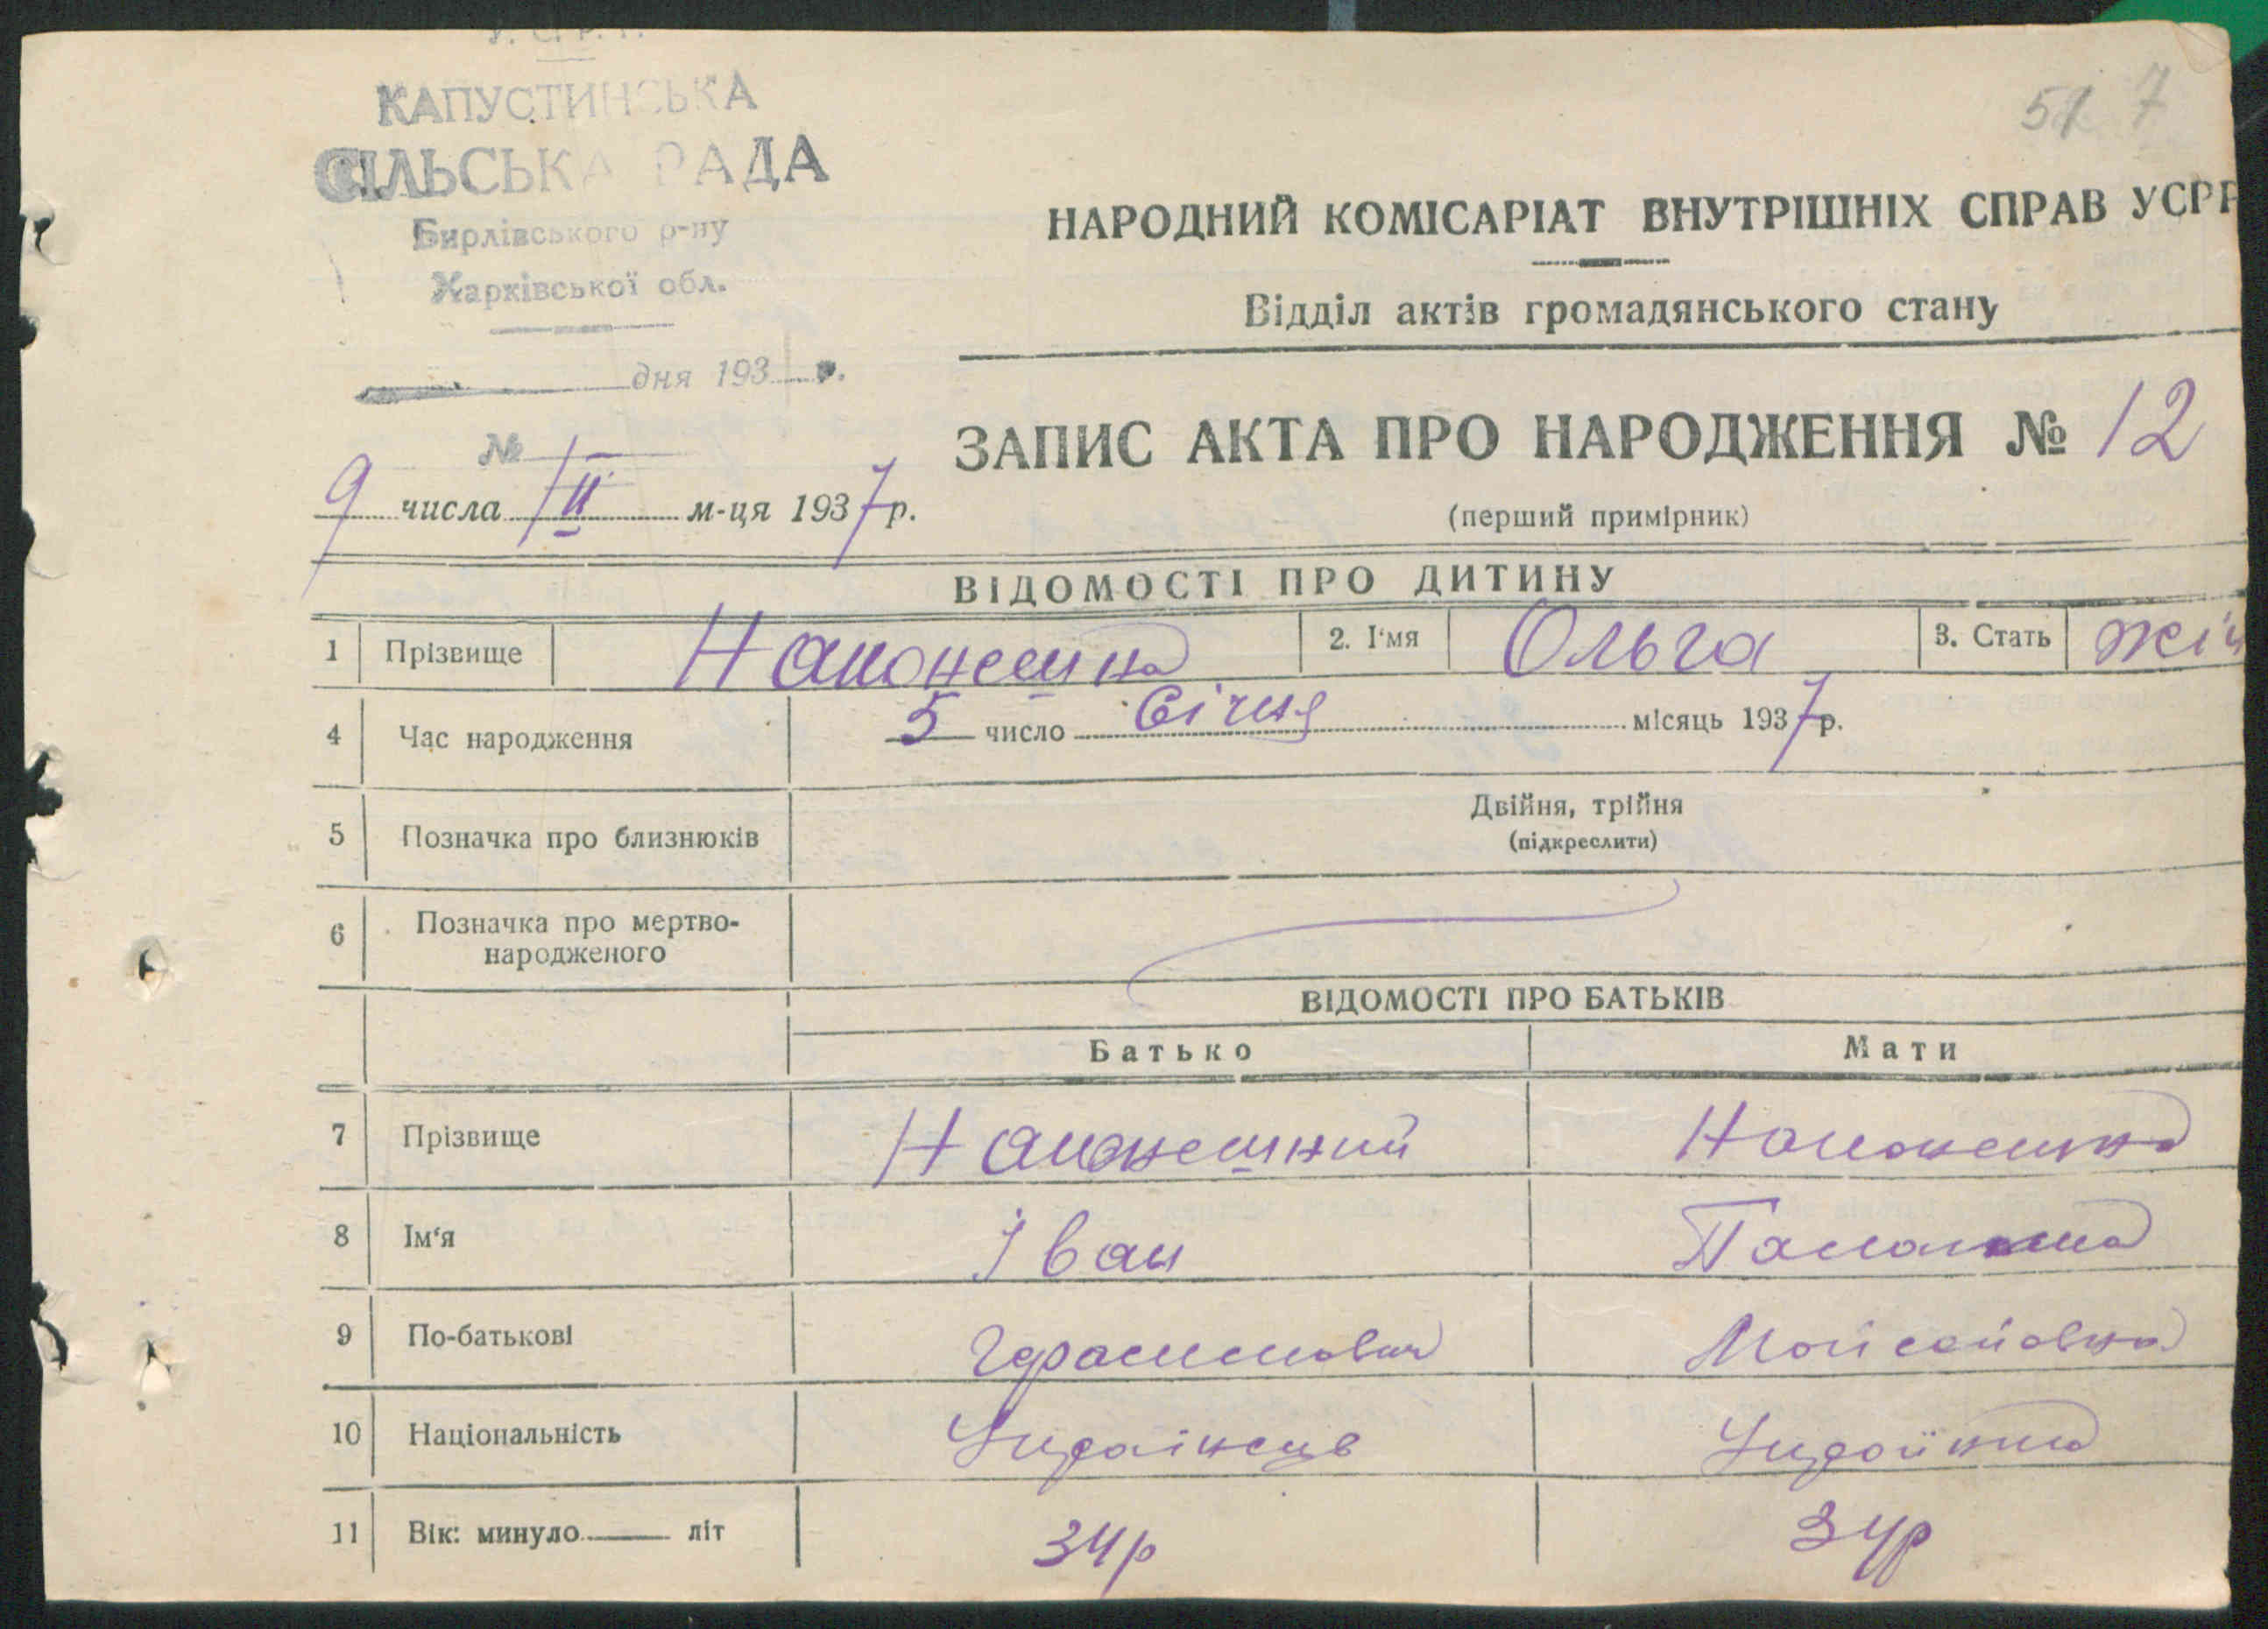 У. С. Р. Р.
КАПУСТИНСЬКА
СІЛЬСЬКА РАДА
Бирлівського р-ну
Харківської обл.
дня 193 р.
№
51 7
НАРОДНИЙ КОМІСАРІАТ ВНУТРІШНІХ СПРАВ УСРР
Відділ актів громадянського стану
ЗАПИС АКТА ПРО НАРОДЖЕННЯ № 12
(перший примірник)
9 числа II м-ця 1937 р.
ВІДОМОСТІ ПРО ДИТИНУ
1 Прізвище 2. І'мя Ольга 3. Стать жін
4 Час народження 5 число Січня місяць 1937 р.
5 Позначка про близнюків Двійня, трійня
(підкреслити)
6 Позначка про мертво-
народженого
ВІДОМОСТІ ПРО БАТЬКІВ
Батько Мати
7 Прізвище
8 Ім'я Іван
9 По-батькові Герасимович Мойсейовна
10 Національність Українець Українка
11 Вік: минуло літ 34р 34р